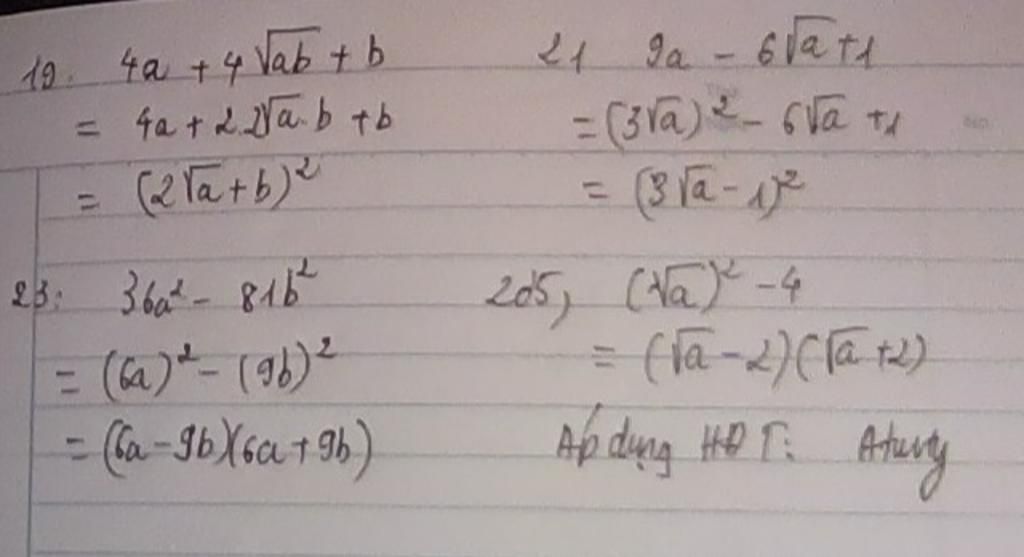 19. 4a + 4√ab + b
= 4a + 2.2√a.b + b
= (2√a + b)²
21 9a - 6√a + 1
= (3√a)² - 6√a + 1
= (3√a - 1)²
23: 36a² - 81b²
= (6a)² - (9b)²
= (6a - 9b)(6a + 9b)
25, (√a)² - 4
= (√a - 2)(√a + 2)
Áp dụng HĐT: